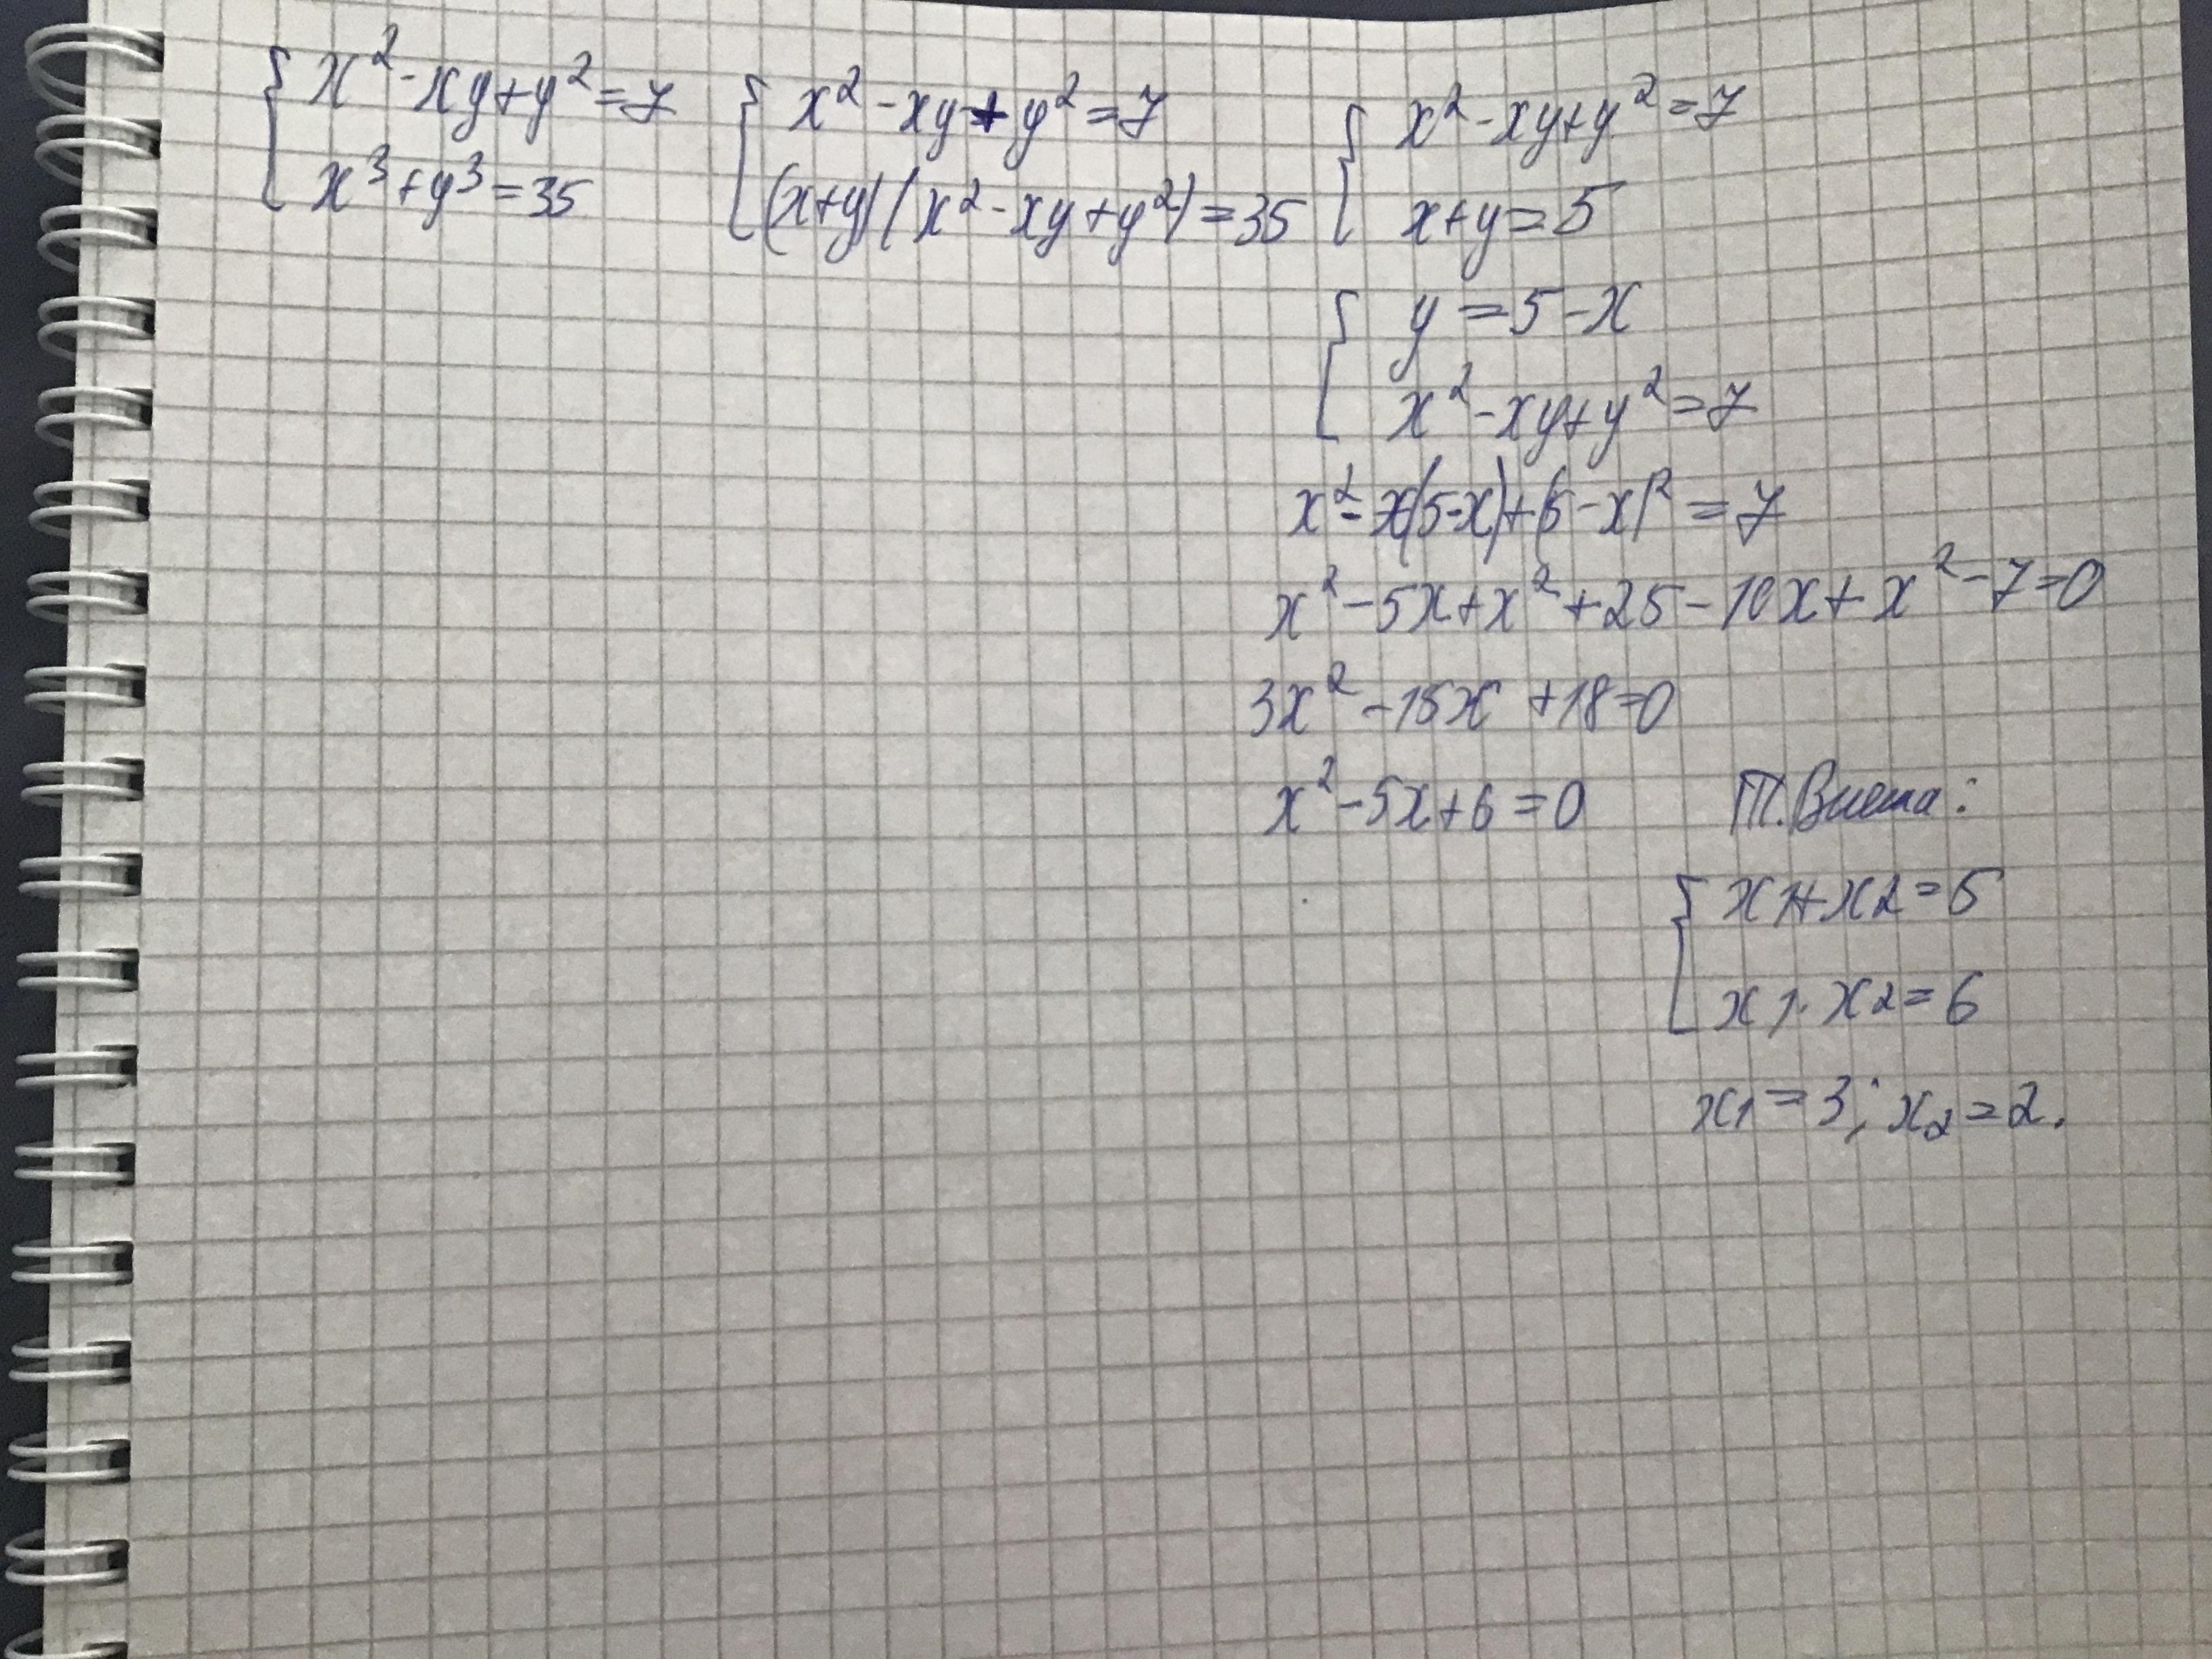 { x² - xy + y² = 7 { x² - xy + y² = 7 { x² - xy + y² = 7
x³ + y³ = 35 (x+y)(x² - xy + y²) = 35 x + y = 5
{ y = 5 - x
x² - xy + y² = 7
x² - x(5-x) + (5-x)² = 7
x² - 5x + x² + 25 - 10x + x² - 7 = 0
3x² - 15x + 18 = 0
x² - 5x + 6 = 0 Т. Виета:
{ x1 + x2 = 5
x1 · x2 = 6
x1 = 3; x2 = 2.